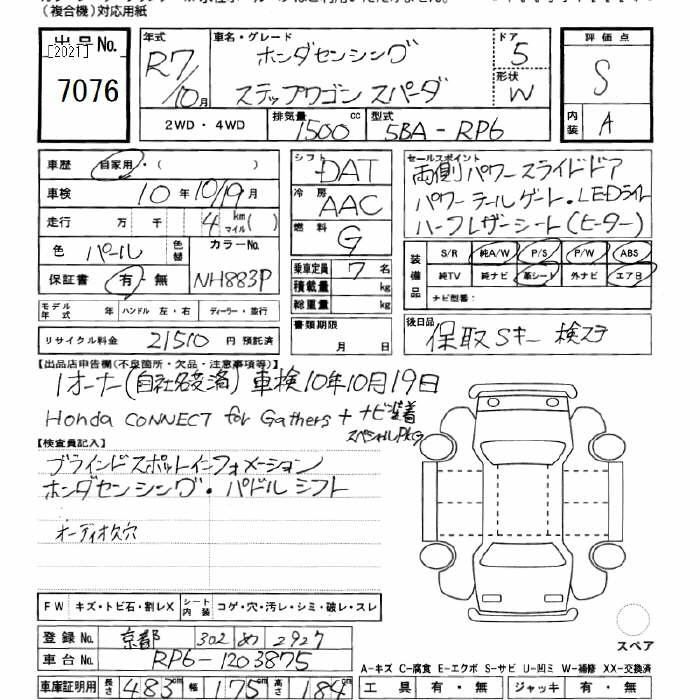 （複合機）対応用紙
出品No.
[2021]
7076
年式
R7/10月
車名・グレード
ホンダセンシング
ステップワゴン スパーダ
ドア
5
形状
W
評価点
S
内装
A
2WD・4WD
排気量
1500 cc
型式
5BA-RP6
車歴
自家用・（ ）
車検
10年10/19月
走行
万 千 4 km マイル( )
色
パール
色替
カラーNo.
NH883P
保証書
有・無
シフト
DAT
冷房
AAC
燃料
G
セールスポイント
両側パワースライドドア
パワーテールゲート・LEDライト
ハーフレザーシート(ヒーター)
装備品
S/R 純A/W P/S P/W ABS
純TV 純ナビ 革シート 外ナビ エアB
ナビ型番：
乗車定員 7 名
積載量 kg
総重量 kg
モデル年式 年 ハンドル 左・右 ディーラー・並行
書類期限
月 日
後日品
保取 Sキー 検ステ
リサイクル料金 21510 円 預託済
【出品店申告欄(不良箇所・欠品・注意事項等)】
1オーナー(自社名変済) 車検10年10月19日
Honda CONNECT for Gathers + ナビ装着
スペシャルPKG
【検査員記入】
ブラインドスポットインフォメーション
ホンダセンシング・パドルシフト
オーディオ欠穴
FW キズ・トビ石・割レX シート内装 コゲ・穴・汚レ・シミ・破レ・スレ
登録No. 京都 302 め 2927
車台No. RP6-1203875
スペア
A-キズ C-腐食 E-エクボ S-サビ U-凹ミ W-補修 XX-交換済
車庫証明用 長さ 483cm 幅 175cm 高さ 184cm
工具 有・無 ジャッキ 有・無